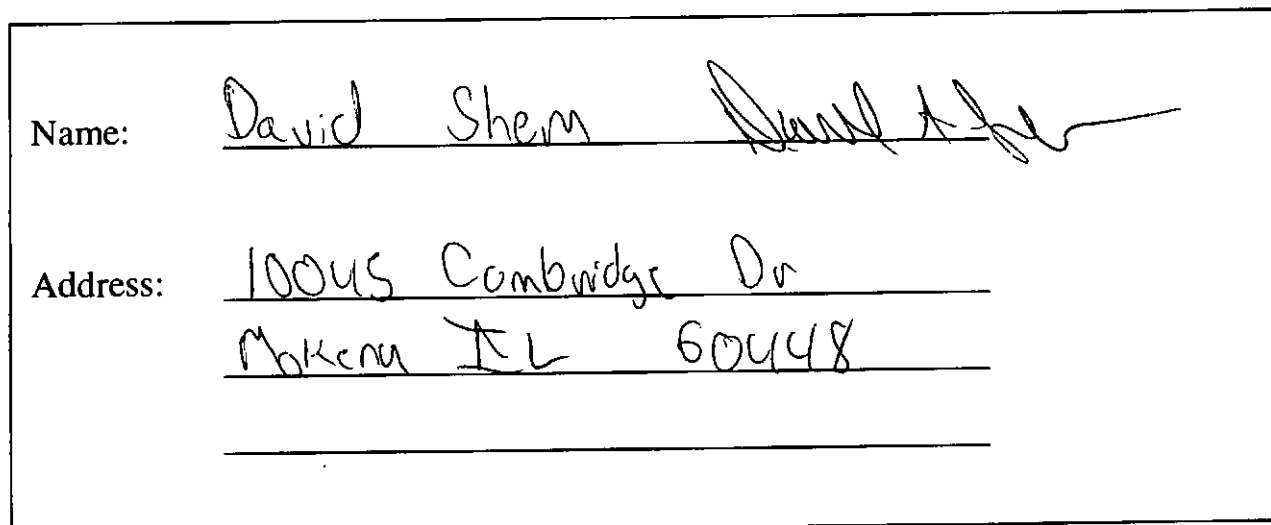 Name: David Shem
Address: 10045 Cambridge Dr
Mokena IL 60448